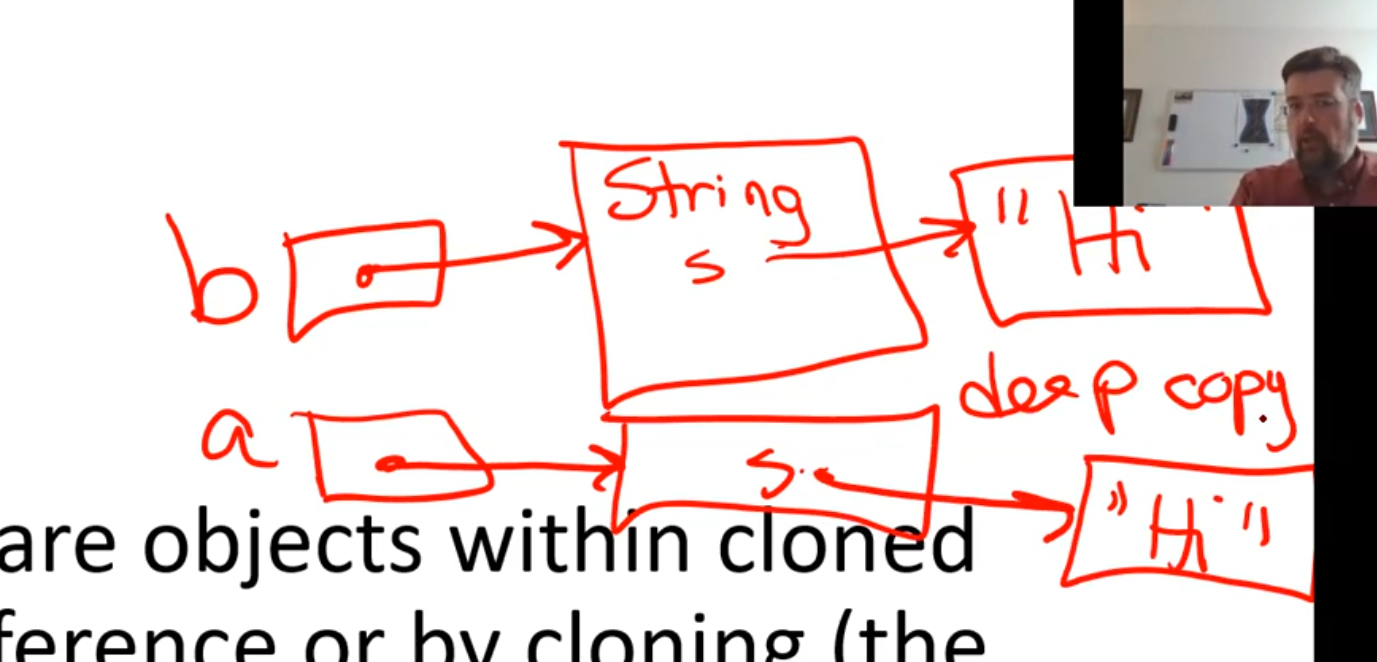 String
b s "Hi"
deep copy
a s "Hi"
are objects within cloned
ference or by cloning (the